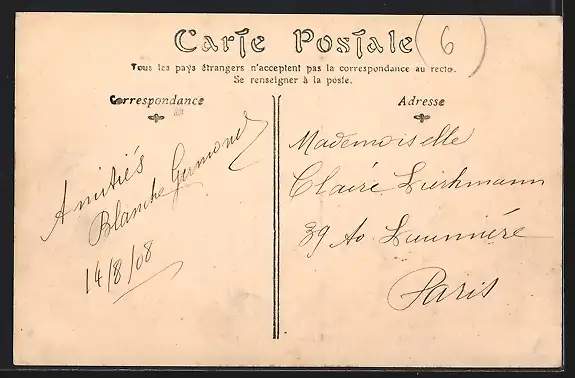 Carte Postale
6
Tous les pays étrangers n'acceptent pas la correspondance au recto.
Se renseigner à la poste.
Correspondance
Adresse
Amitiés
Blanche
14/8/08
Mademoiselle
Claire
39 Av
Paris